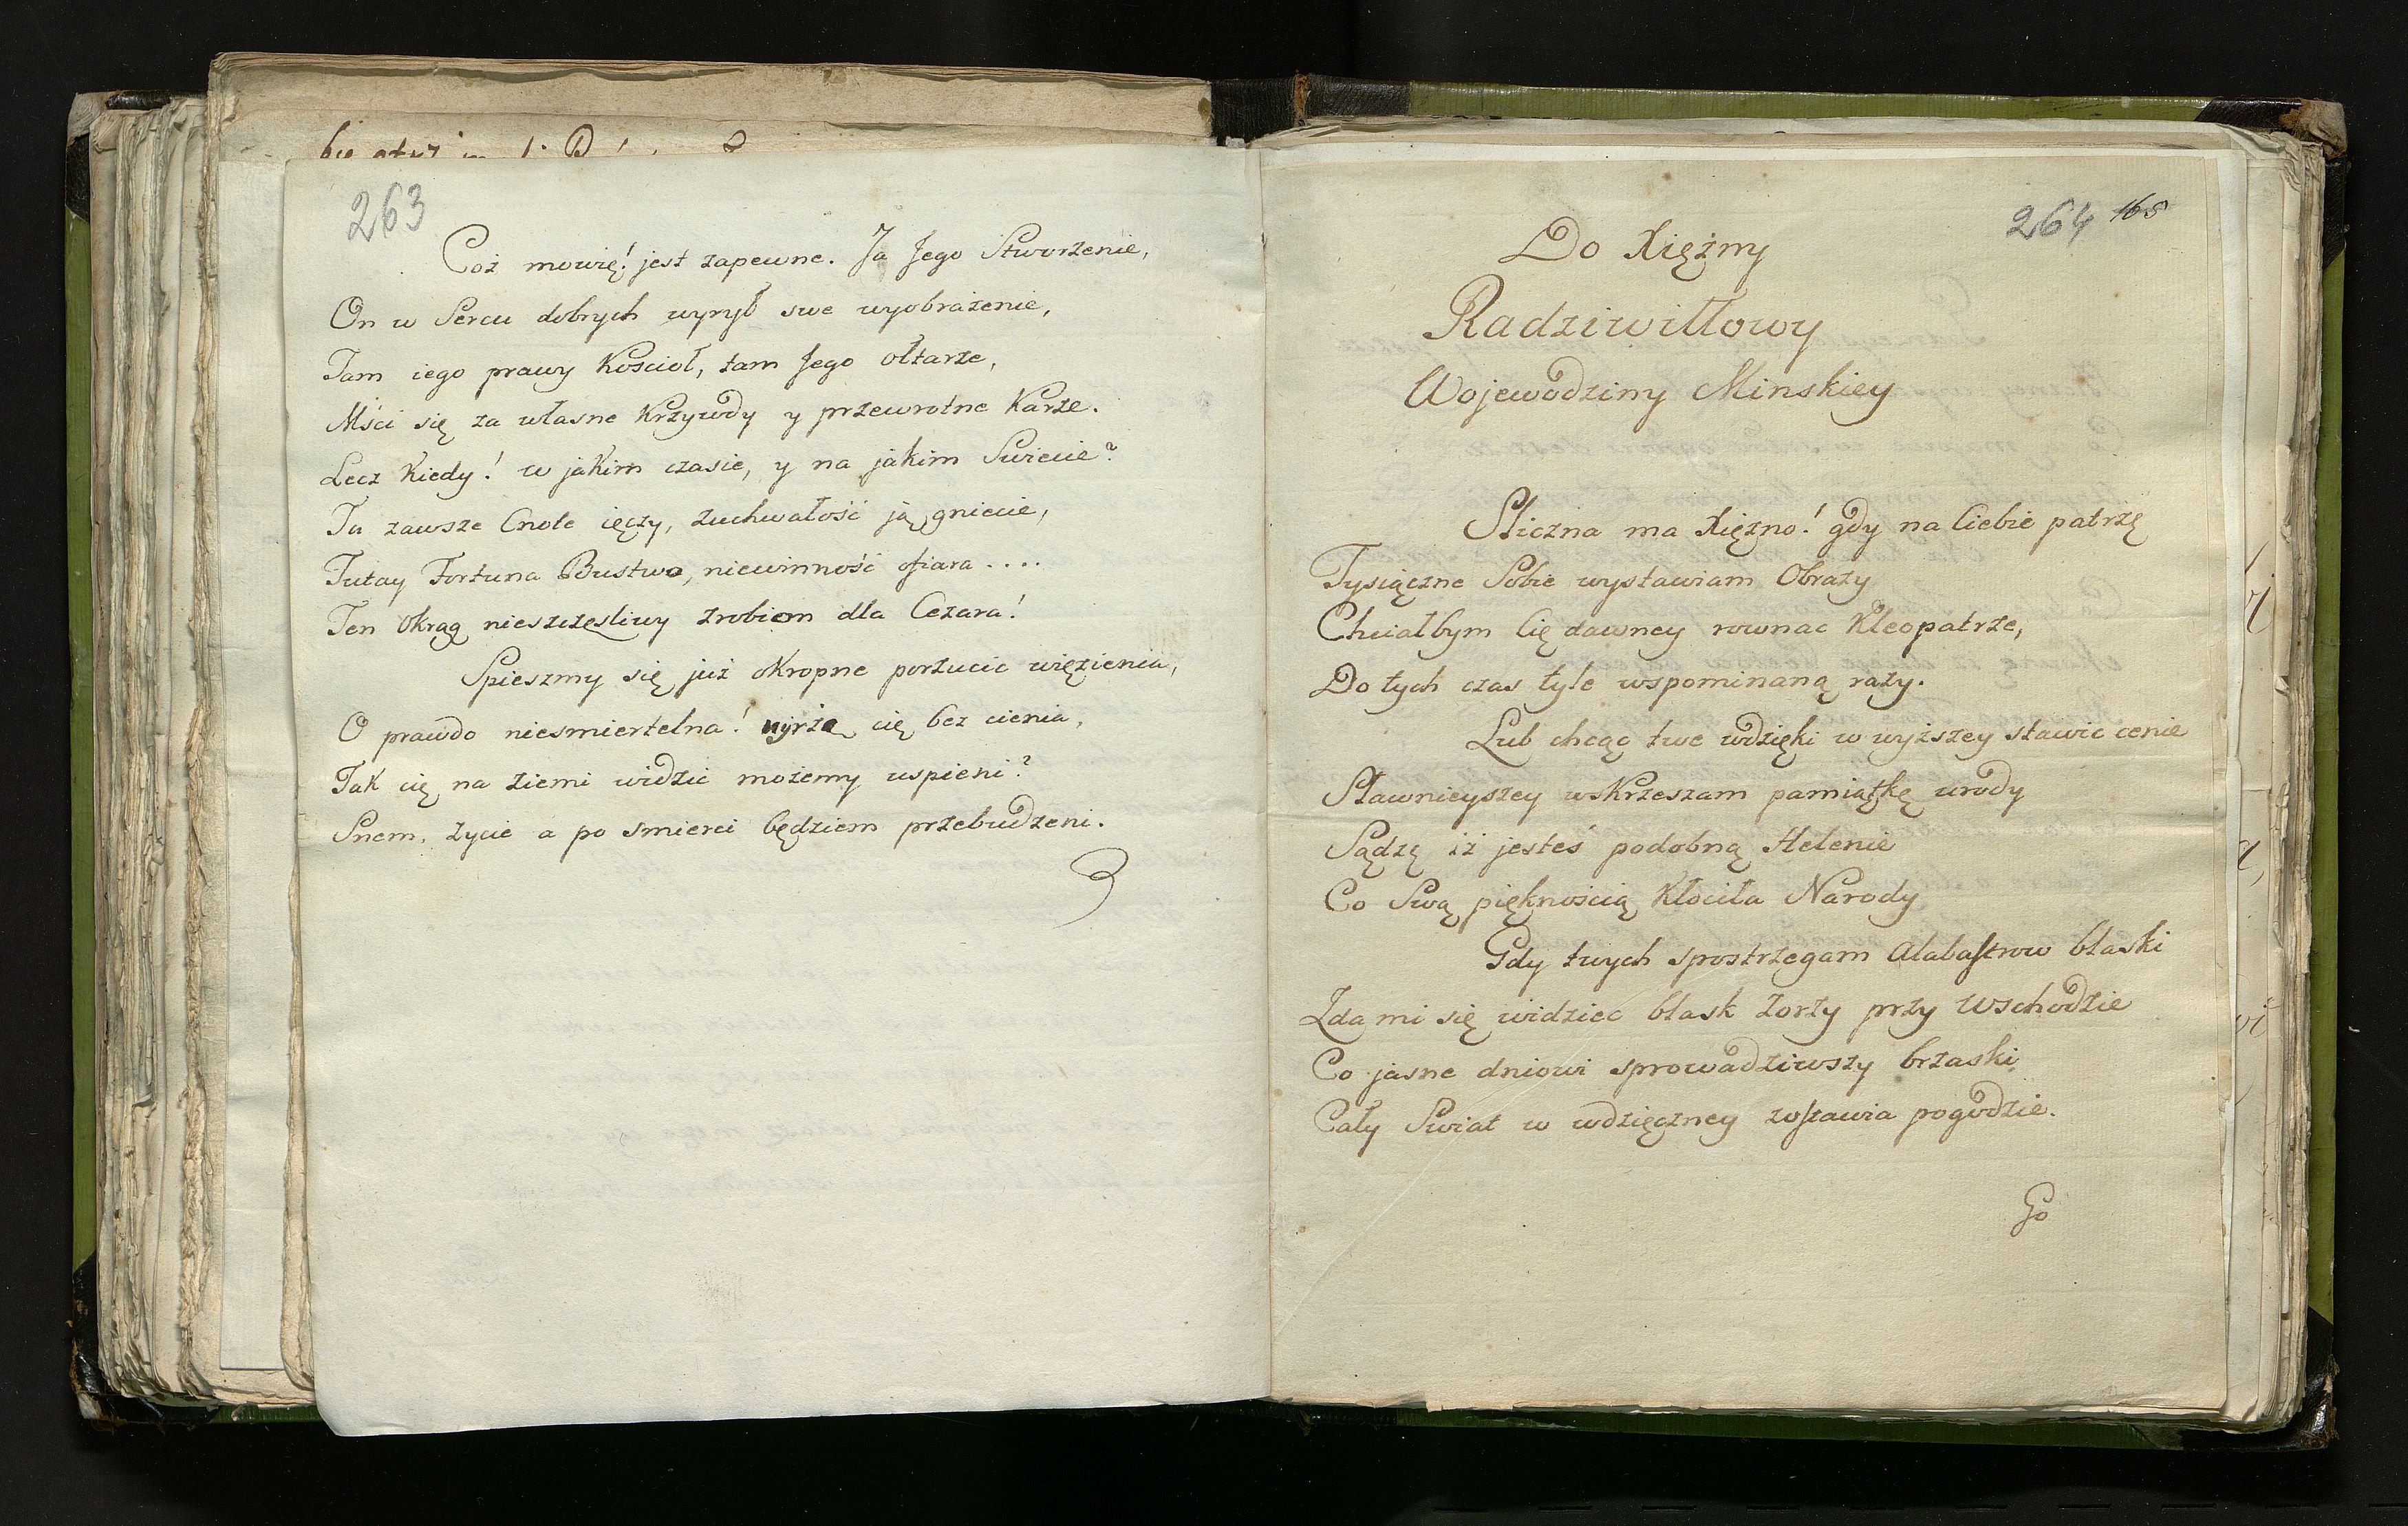 263
Coż mowię! jest zapewne. Ja Jego Stworzenie,
On w Sercu dobrych wyrył swe wyobrażenie,
Tam iego prawy Kościoł, tam Jego ołtarze,
Mści się za własne Krzywdy y przewrotne Karze.
Lecz Kiedy! w jakim czasie, y na jakim Swiecie?
Tu zawsze Cnote ięczy, zuchwałość ją gniecie,
Tutay Fortuna Bustwo, niewinność ofiara ....
Ten Okrąg nieszczęsliwy zrobiom dla Cezara!
Spieszmy się już okropne porzucic więzienia,
O prawdo niesmiertelna! ujrzę cię bez cienia,
Tak cię na ziemi widzic możemy uspieni?
Snem, zycie a po smierci będziem przebudzeni.
264 165
Do Xiężny
Radziwiłłowy
Wojewodziny Minskiey
Sliczna ma Xiężno! gdy na Ciebie patrzę
Tysiączne Sobie wystawiam Obrazy
Chciałbym Cię dawney rownac Kleopatrze,
Do tych czas tyle wspominaną razy.
Lub chcąc twe wdzięki w wyższey stawic cenie
Sławnieyszey wskrzeszam pamiątkę urody
Sądzę iż jesteś podobną Helenie
Co Swą pięknościa Kłociła Narody
Gdy twych spostrzegam Alabastrow blaski
Zda mi się widziec blask Zorzy przy Wschodzie
Co jasne dniowi sprowadziwszy brzaski
Cały Swiat w wdzięczney zostawia pogodzie.
Go